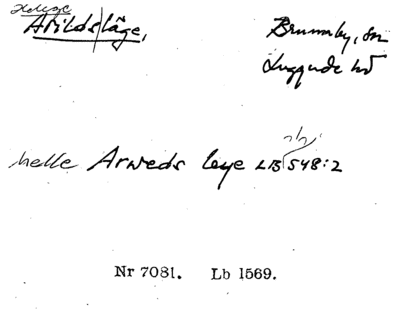 Helige
Arilds|läge, Brunnby, sn
Luggude hd
helle Arweds leye LB 548:2
Nr 7081. Lb 1569.